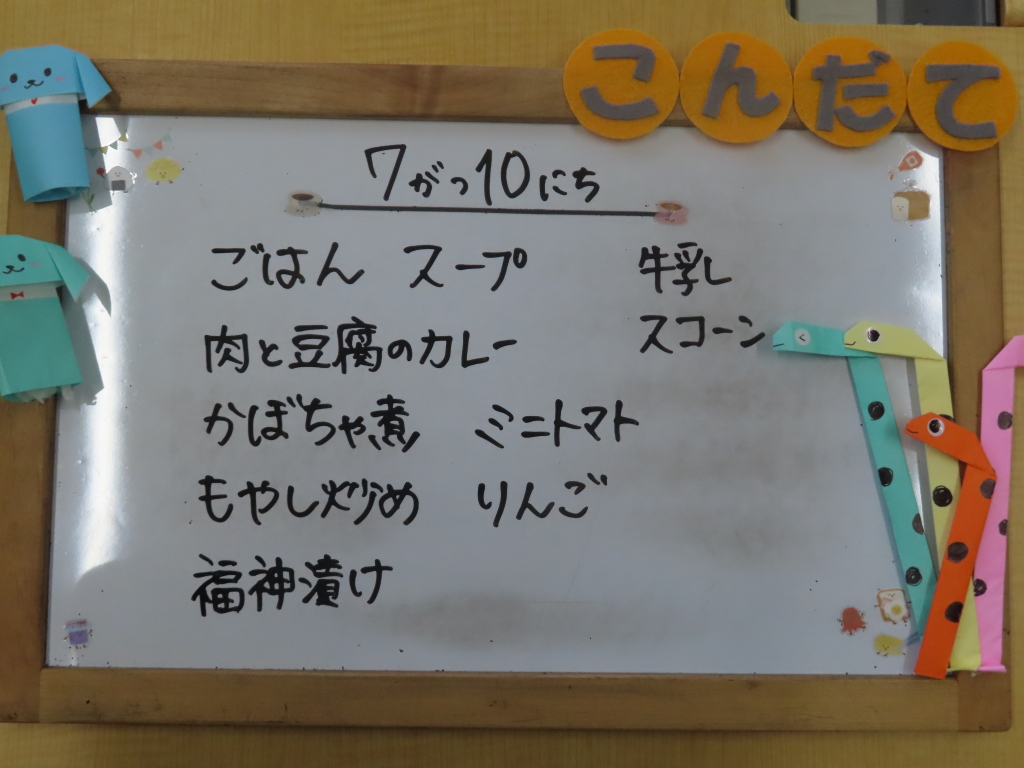 こんだて
7がつ10にち
ごはん スープ 牛乳
肉と豆腐のカレー スコーン
かぼちゃ煮 ミニトマト
もやし炒め りんご
福神漬け